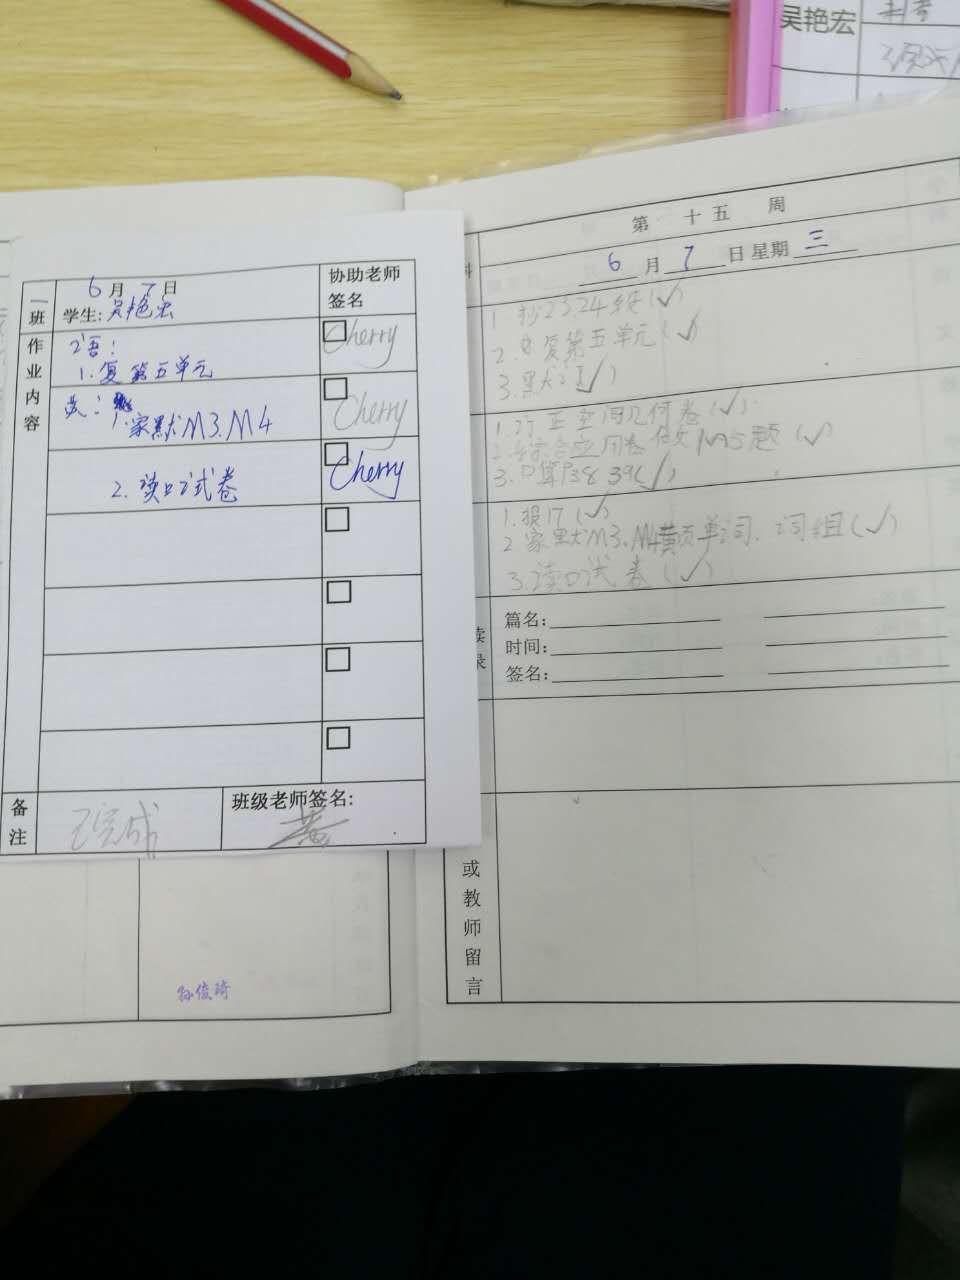 吴艳宏
第 十五 周
6月7日星期三
1.抄23.24纸(√)
2.复第五单元(√)
1.订正空间几何卷(√)
3.口算P38 39(√)
1.报17(√)
2.家默M3.M4黄页单词、词组(√)
3.读口试卷(√)
篇名:
时间:
签名:
或教师留言
一班
6月7日
学生:吴艳宏
协助老师签名
作业内容
语:
1.复第五单元
Cherry
英:
1.家默M3.M4
Cherry
2.读口试卷
Cherry
备注
已完成
班级老师签名:
黄
孙俊琦